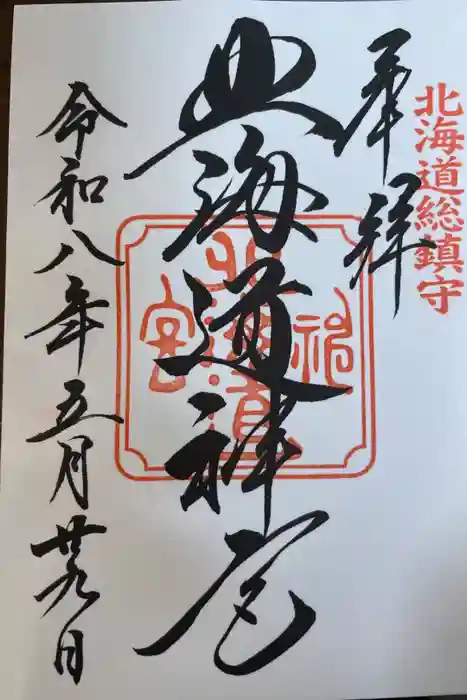 北海道総鎮守
奉拝
北海道神宮
北海道神宮
令和八年五月廿九日